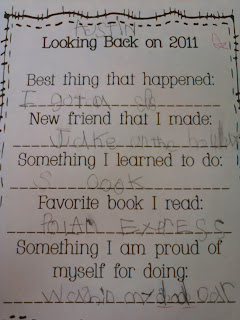 AUSTIN
Looking Back on 2011
Best thing that happened:
I got a
New friend that I made:
Jake
Something I learned to do:
cook
Favorite book I read:
POlAR EXPRESS
Something I am proud of
myself for doing: